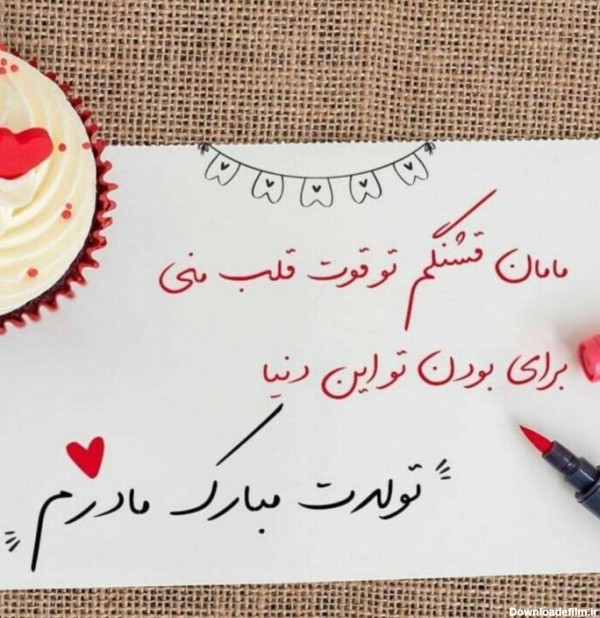 مامان قشنگم تو قوت قلب منی
برای بودن تو این دنیا
تولدت مبارک مادرم
Downloadefilm.ir